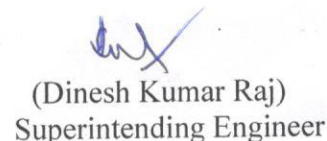 (Dinesh Kumar Raj)
Superintending Engineer